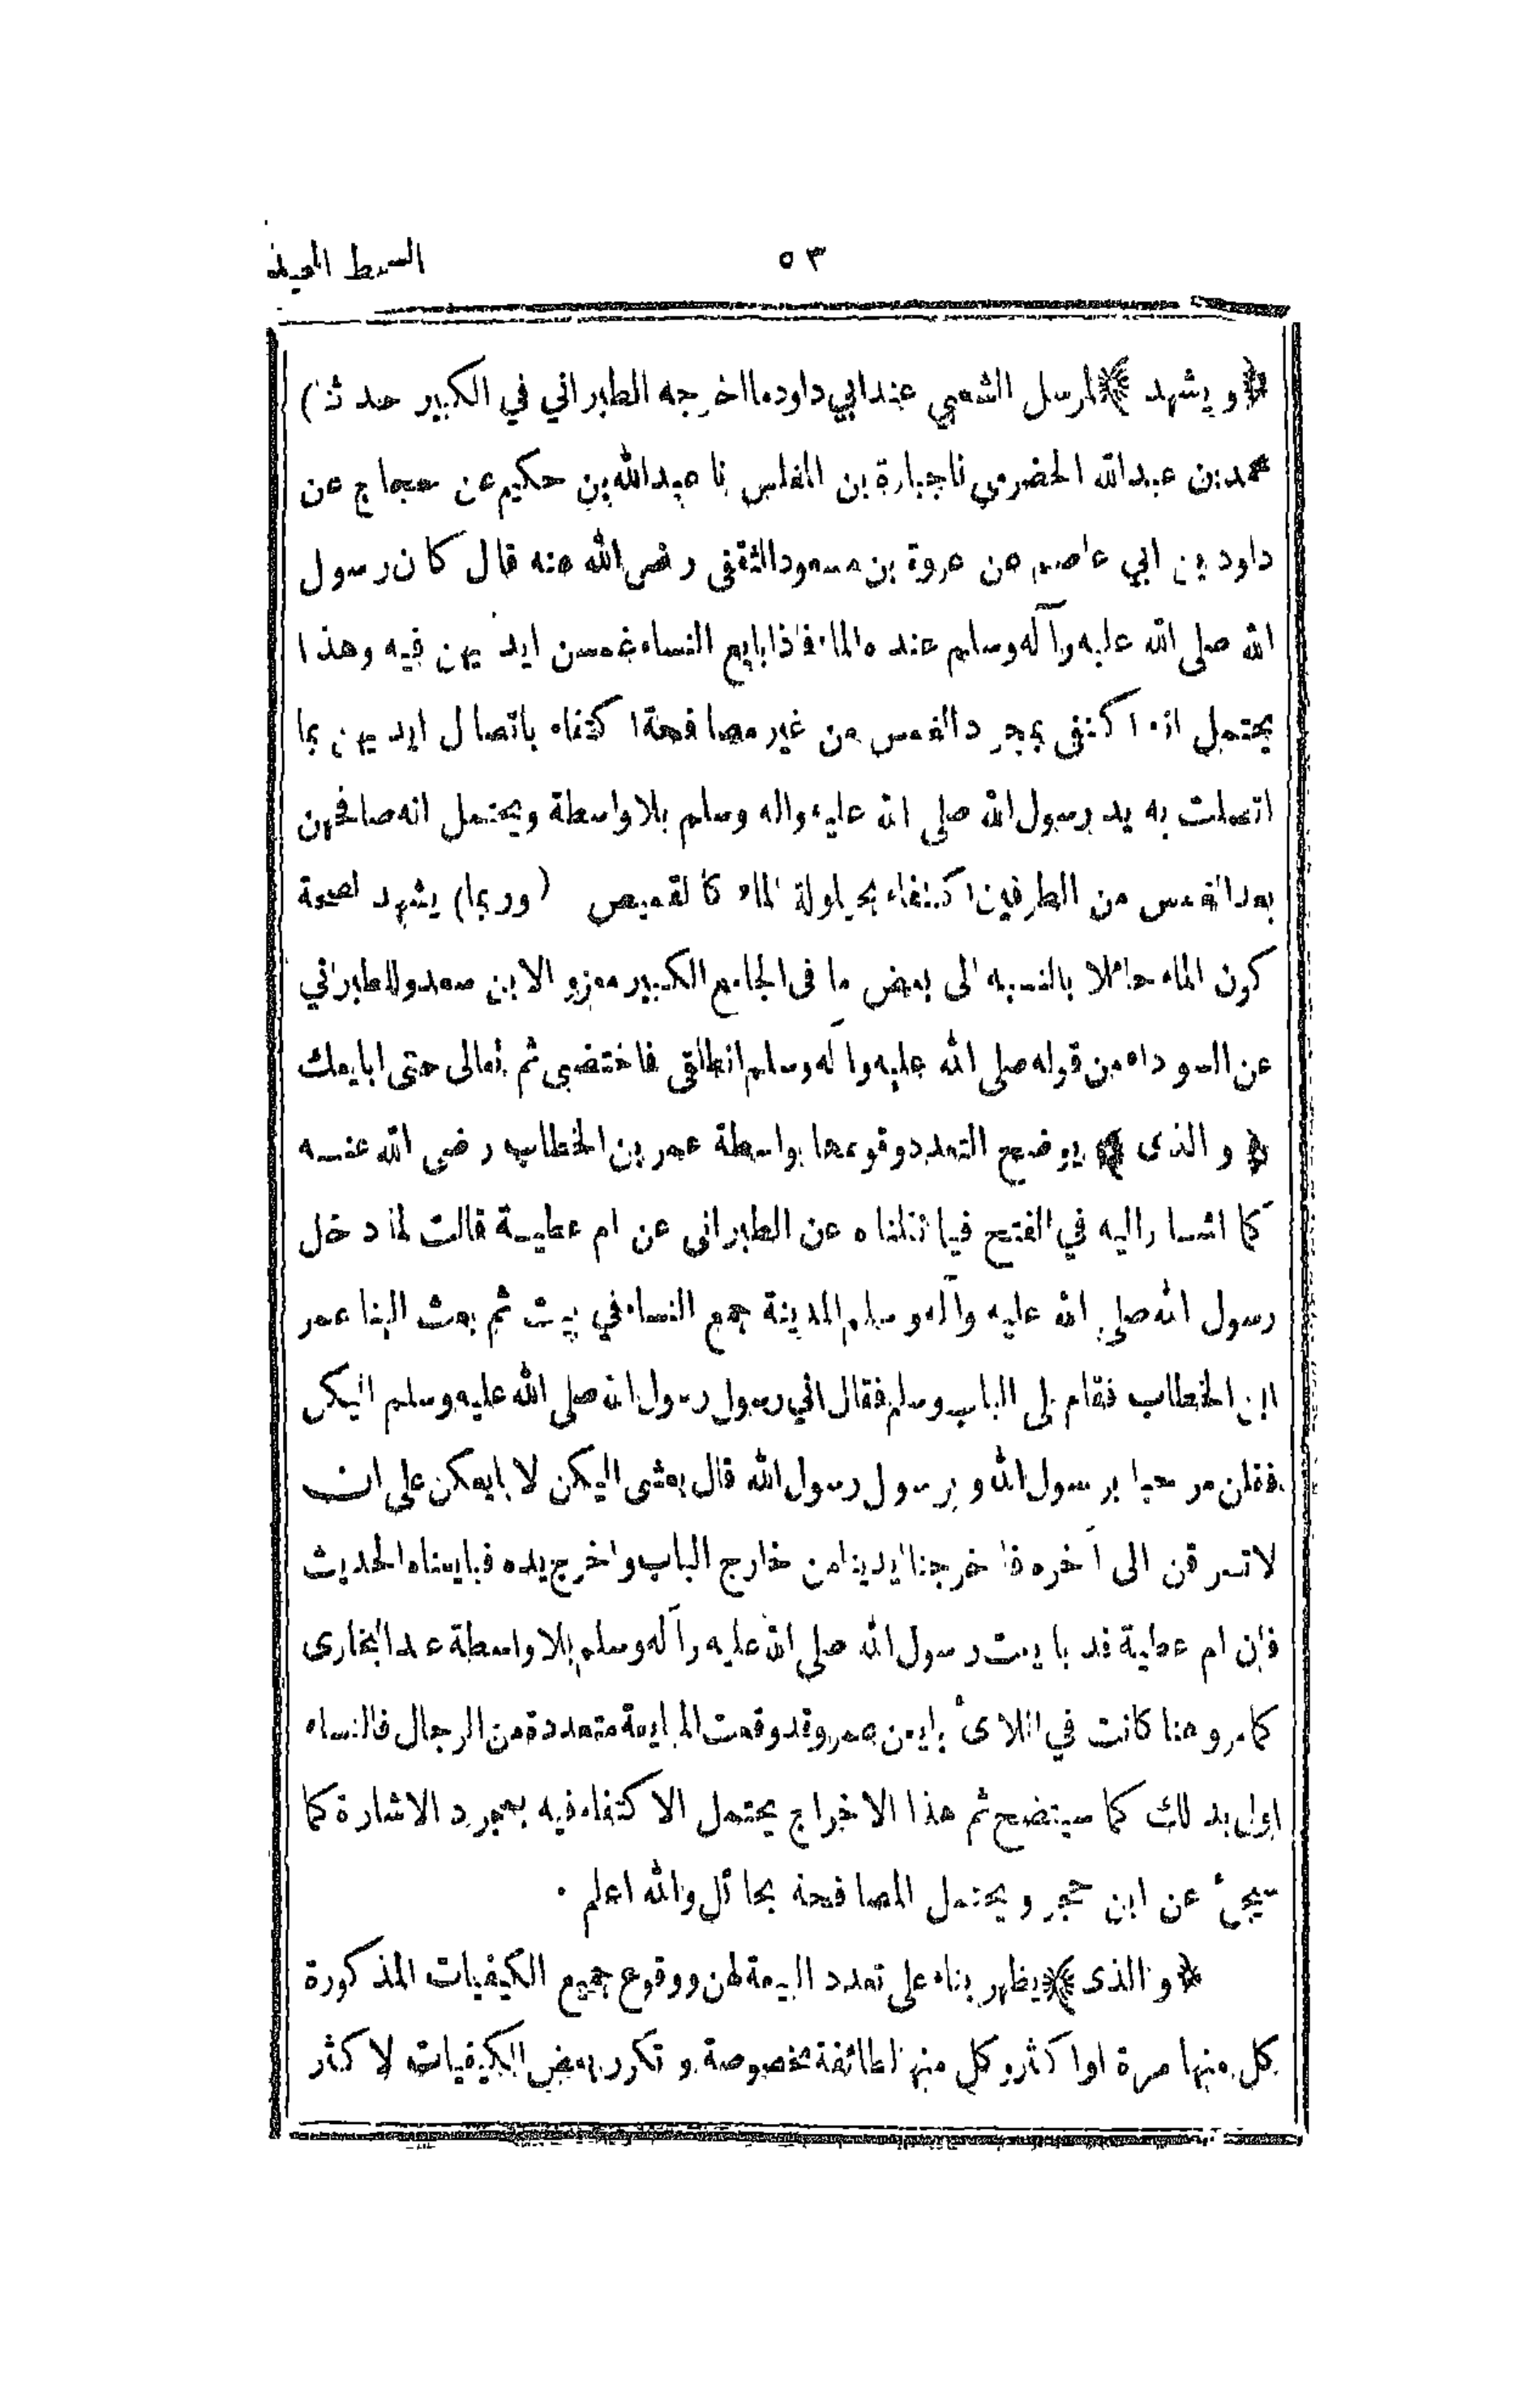 ٥٣ السمط المجيد
﴿ويشهد﴾ لمرسل الشعبي عند ابي داود ما اخرجه الطبراني في الكبير حدثنا
محمد بن عبد الله الحضرمي نا جبارة بن المغلس نا عبد الله بن حكيم عن حجاج عن
داود بن ابي عاصم عن عروة بن مسعود الثقفى رضى الله عنه قال كان رسول
الله صلى الله عليه وآله وسلم عنده الماء فاذا بايع النساء غمسن ايديهن فيه وهذا
يحتمل انه اكتفى بمجرد الغمس من غير مصافحة اكتفاء باتصال ايديهن بما
اتصلت به يد رسول الله صلى الله عليه واله وسلم بلا واسطة ويحتمل انه صافحهن
بعد الغمس من الطرفين اكتفاء بحيلولة الماء كالقميص (وربما) يشهد لصحة
كون الماء حائلا بالنسبه الى بعض ما فى الجامع الكبير معزوا لابن سعد والطبراني
عن السوداء من قوله صلى الله عليه وآله وسلم انطلقى فاختضبى ثم تعالى حتى ابايعك
﴿والذى﴾ يوضح التعدد وقوعها بواسطة عمر بن الخطاب رضى الله عنه
كما اشار اليه في الفتح فيما نقلناه عن الطبرانى عن ام عطية قالت لما دخل
رسول الله صلى الله عليه وآله وسلم المدينة جمع النساء في بيت ثم بعث الينا عمر
ابن الخطاب فقام على الباب وسلم فقال اني رسول رسول الله صلى الله عليه وسلم اليكن
فقلن مرحبا برسول الله وبرسول رسول الله قال بعثنى اليكن لا بايعكن على ان
لا تسرقن الى آخره فاخرجنا ايدينا من خارج الباب واخرج يده فبايعناه الحديث
فان ام عطية قد بايعت رسول الله صلى الله عليه وآله وسلم بلا واسطة عند البخارى
كما مر وهنا كانت في اللائ بايعن عمر وقد وقعت المبايعة متعددة من الرجال فالنساء
اولى بذلك كما سيتضح ثم هذا الاخراج يحتمل الاكتفاء فيه بمجرد الاشارة كما
سيجئ عن ابن حجر ويحتمل المصافحة بحائل والله اعلم ٠
﴿والذى﴾ يظهر بناء على تعدد البيعة لهن ووقوع جميع الكيفيات المذكورة
كل منها مرة او اكثر وكل منها لطائفة مخصوصة وتكرر بعض الكيفيات لاكثر